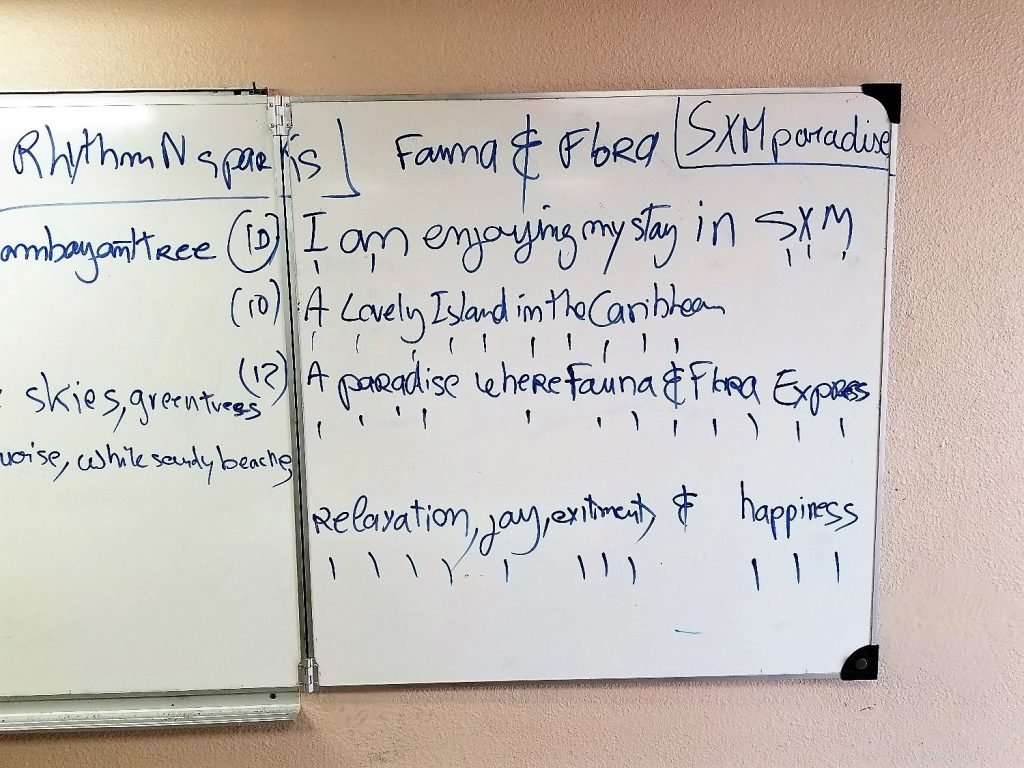 Rhythm N sparks] Fauna & Flora [SXM paradise
(10) I am enjoying my stay in SXM
(10) A Lovely Island in the Caribbean
(12) A paradise where Fauna & Flora Express
skies, green trees
white sandy beaches
relaxation, joy, exitment, & happiness